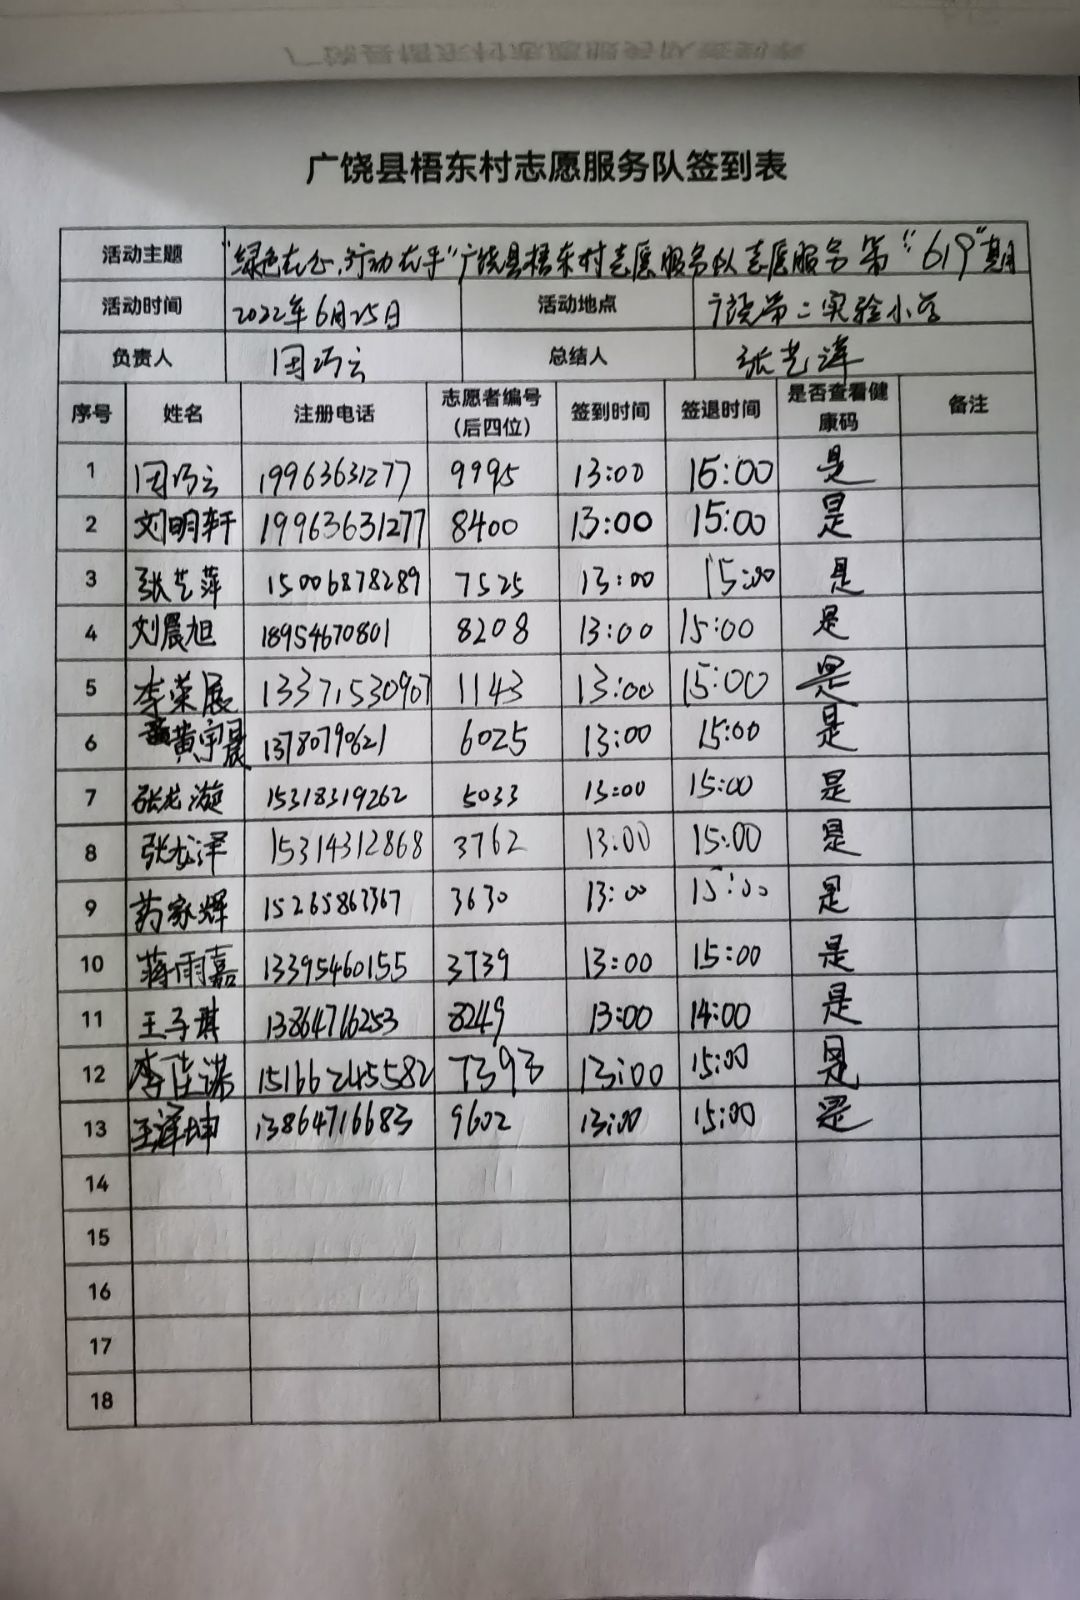 广饶县梧东村志愿服务队签到表
活动主题 "绿色在心,行动在手"广饶县梧东村志愿服务队志愿服务第"619"期
活动时间 2022年6月25日 活动地点 广饶第二实验小学
负责人 周巧云 总结人 张艺泽
序号 姓名 注册电话 志愿者编号(后四位) 签到时间 签退时间 是否查看健康码 备注
1 周巧云 19963631277 9995 13:00 15:00 是
2 刘明轩 19963631277 8400 13:00 15:00 是
3 张艺萍 15006878289 7525 13:00 15:00 是
4 刘晨旭 18954670801 8208 13:00 15:00 是
5 李荣展 13371530907 1143 13:00 15:00 是
6 黄宇晨 1378079621 6025 13:00 15:00 是
7 张龙漩 15318319262 5033 13:00 15:00 是
8 张龙泽 15314312868 3762 13:00 15:00 是
9 家辉 15265863367 3630 13:00 15:00 是
10 蒋雨嘉 13395460155 3739 13:00 15:00 是
11 王子琪 13864716253 8249 13:00 14:00 是
12 李佳诺 15166245582 7393 13:00 15:00 是
13 王泽坤 13864716683 9602 13:00 15:00 是
14
15
16
17
18